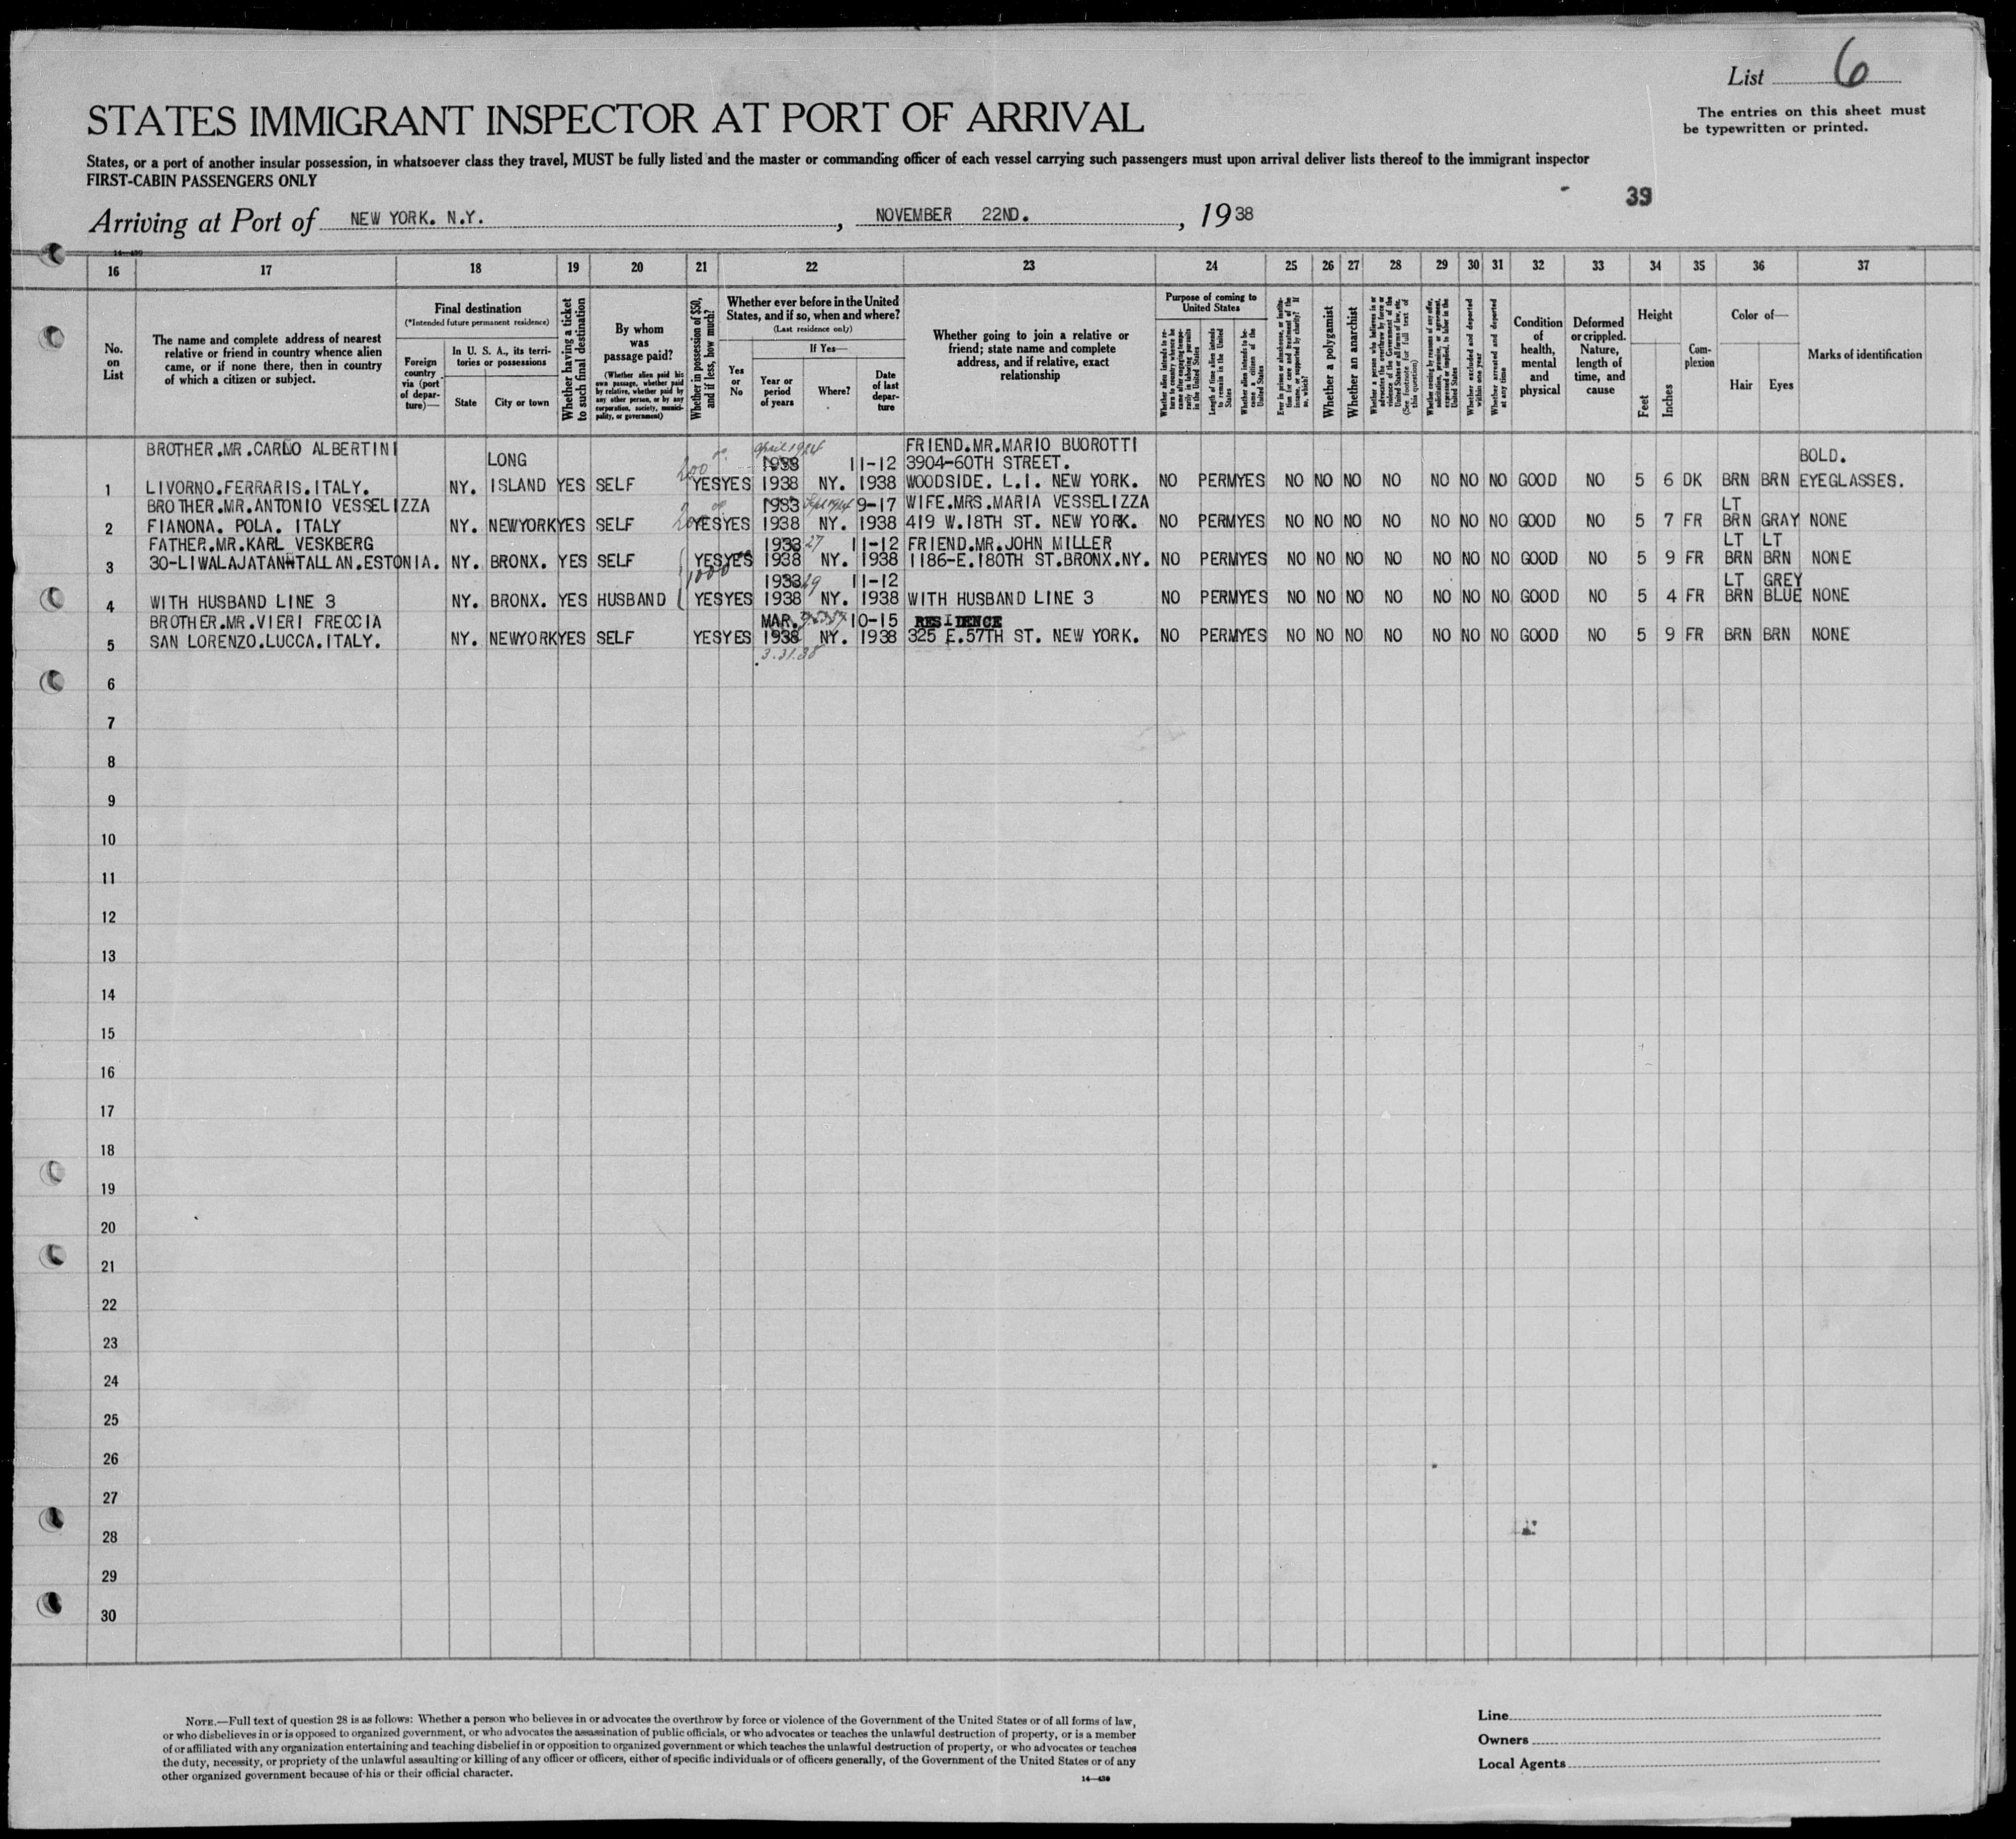 List 6
STATES IMMIGRANT INSPECTOR AT PORT OF ARRIVAL
The entries on this sheet must
be typewritten or printed.
States, or a port of another insular possession, in whatsoever class they travel, MUST be fully listed and the master or commanding officer of each vessel carrying such passengers must upon arrival deliver lists thereof to the immigrant inspector
FIRST-CABIN PASSENGERS ONLY
39
Arriving at Port of NEW YORK. N.Y. , NOVEMBER 22ND. , 1938
14-430
16 17 18 19 20 21 22 23 24 25 26 27 28 29 30 31 32 33 34 35 36 37
No. on List
The name and complete address of nearest relative or friend in country whence alien came, or if none there, then in country of which a citizen or subject.
Final destination
(*Intended future permanent residence)
Foreign country via (port of departure)—
In U. S. A., its territories or possessions
State
City or town
Whether having a ticket to such final destination
By whom was passage paid?
(Whether alien paid his own passage, whether paid by relative, whether paid by any other person, or by any corporation, society, municipality, or government)
Whether in possession of $50, and if less, how much?
Whether ever before in the United States, and if so, when and where?
(Last residence only)
Yes or No
If Yes—
Year or period of years
Where?
Date of last departure
Whether going to join a relative or friend; state name and complete address, and if relative, exact relationship
Purpose of coming to United States
Whether alien intends to return to country whence he came after engaging temporarily in laboring pursuits in the United States
Length of time alien intends to remain in the United States
Whether alien intends to become a citizen of the United States
Ever in prison or almshouse, or institution for care and treatment of the insane, or supported by charity? If so, which?
Whether a polygamist
Whether an anarchist
Whether a person who believes in or advocates the overthrow by force or violence of the Government of the United States or all forms of law, etc. (See footnote for full text of this question)
Whether coming by reason of any offer, solicitation, promise, or agreement, expressed or implied, to labor in the United States
Whether excluded and deported within one year
Whether arrested and deported at any time
Condition of health, mental and physical
Deformed or crippled. Nature, length of time, and cause
Height
Feet
Inches
Complexion
Color of—
Hair
Eyes
Marks of identification
BROTHER.MR.CARLO ALBERTINI April 1924 FRIEND.MR.MARIO BUOROTTI
LONG 200 1933 11-12 3904-60TH STREET. BOLD.
1 LIVORNO.FERRARIS.ITALY. NY. ISLAND YES SELF YES YES 1938 NY. 1938 WOODSIDE. L.I. NEW YORK. NO PERM YES NO NO NO NO NO NO NO GOOD NO 5 6 DK BRN BRN EYEGLASSES.
BROTHER.MR.ANTONIO VESSELIZZA 1933 Sept 1924 9-17 WIFE.MRS.MARIA VESSELIZZA LT
2 FIANONA. POLA. ITALY NY. NEWYORK YES SELF 200 YES YES 1938 NY. 1938 419 W.18TH ST. NEW YORK. NO PERM YES NO NO NO NO NO NO NO GOOD NO 5 7 FR BRN GRAY NONE
FATHER.MR.KARL VESKBERG 1933 27 11-12 FRIEND.MR.JOHN MILLER LT LT
3 30-LIWALAJATAN TALLAN.ESTONIA. NY. BRONX. YES SELF YES YES 1938 NY. 1938 1186-E.180TH ST.BRONX.NY. NO PERM YES NO NO NO NO NO NO NO GOOD NO 5 9 FR BRN BRN NONE
1000 1933 29 11-12 LT GREY
4 WITH HUSBAND LINE 3 NY. BRONX. YES HUSBAND YES YES 1938 NY. 1938 WITH HUSBAND LINE 3 NO PERM YES NO NO NO NO NO NO NO GOOD NO 5 4 FR BRN BLUE NONE
BROTHER.MR.VIERI FRECCIA MAR. 10-15 RESIDENCE
5 SAN LORENZO.LUCCA.ITALY. NY. NEWYORK YES SELF YES YES 1938 NY. 1938 325 E.57TH ST. NEW YORK. NO PERM YES NO NO NO NO NO NO NO GOOD NO 5 9 FR BRN BRN NONE
3.31.38
6
7
8
9
10
11
12
13
14
15
16
17
18
19
20
21
22
23
24
25
26
27
28
29
30
NOTE.—Full text of question 28 is as follows: Whether a person who believes in or advocates the overthrow by force or violence of the Government of the United States or of all forms of law,
or who disbelieves in or is opposed to organized government, or who advocates the assassination of public officials, or who advocates or teaches the unlawful destruction of property, or is a member
of or affiliated with any organization entertaining and teaching disbelief in or opposition to organized government or which teaches the unlawful destruction of property, or who advocates or teaches
the duty, necessity, or propriety of the unlawful assaulting or killing of any officer or officers, either of specific individuals or of officers generally, of the Government of the United States or of any
other organized government because of his or their official character.
14-430
Line
Owners
Local Agents